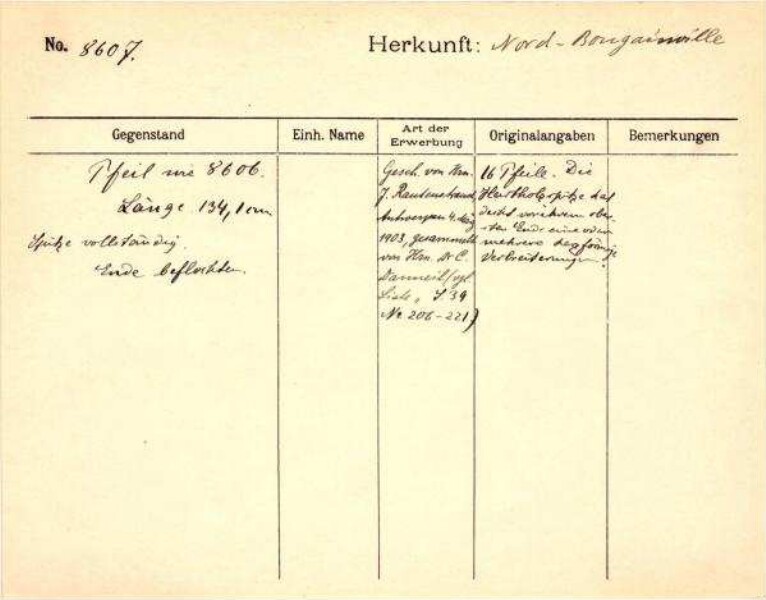 No. 8607.
Herkunft: Nord-Bougainville
Gegenstand
Einh. Name
Art der Erwerbung
Originalangaben
Bemerkungen
Pfeil wie 8606.
Länge 134,1 cm
Spitze vollständig.
Ende beflochten.
Gesch. von Hrn.
J. Rautenstrauch,
Antwerpen 4. Mai
1903, gesammelt
von Hrn. Dr C.
Danneil (vgl
Liste, S 39
No 206-221)
16 Pfeile. Die
Hartholzspitze hat
dicht vor ihrem obe-
ren Ende eine oder
mehrere
Verbreiterungen.